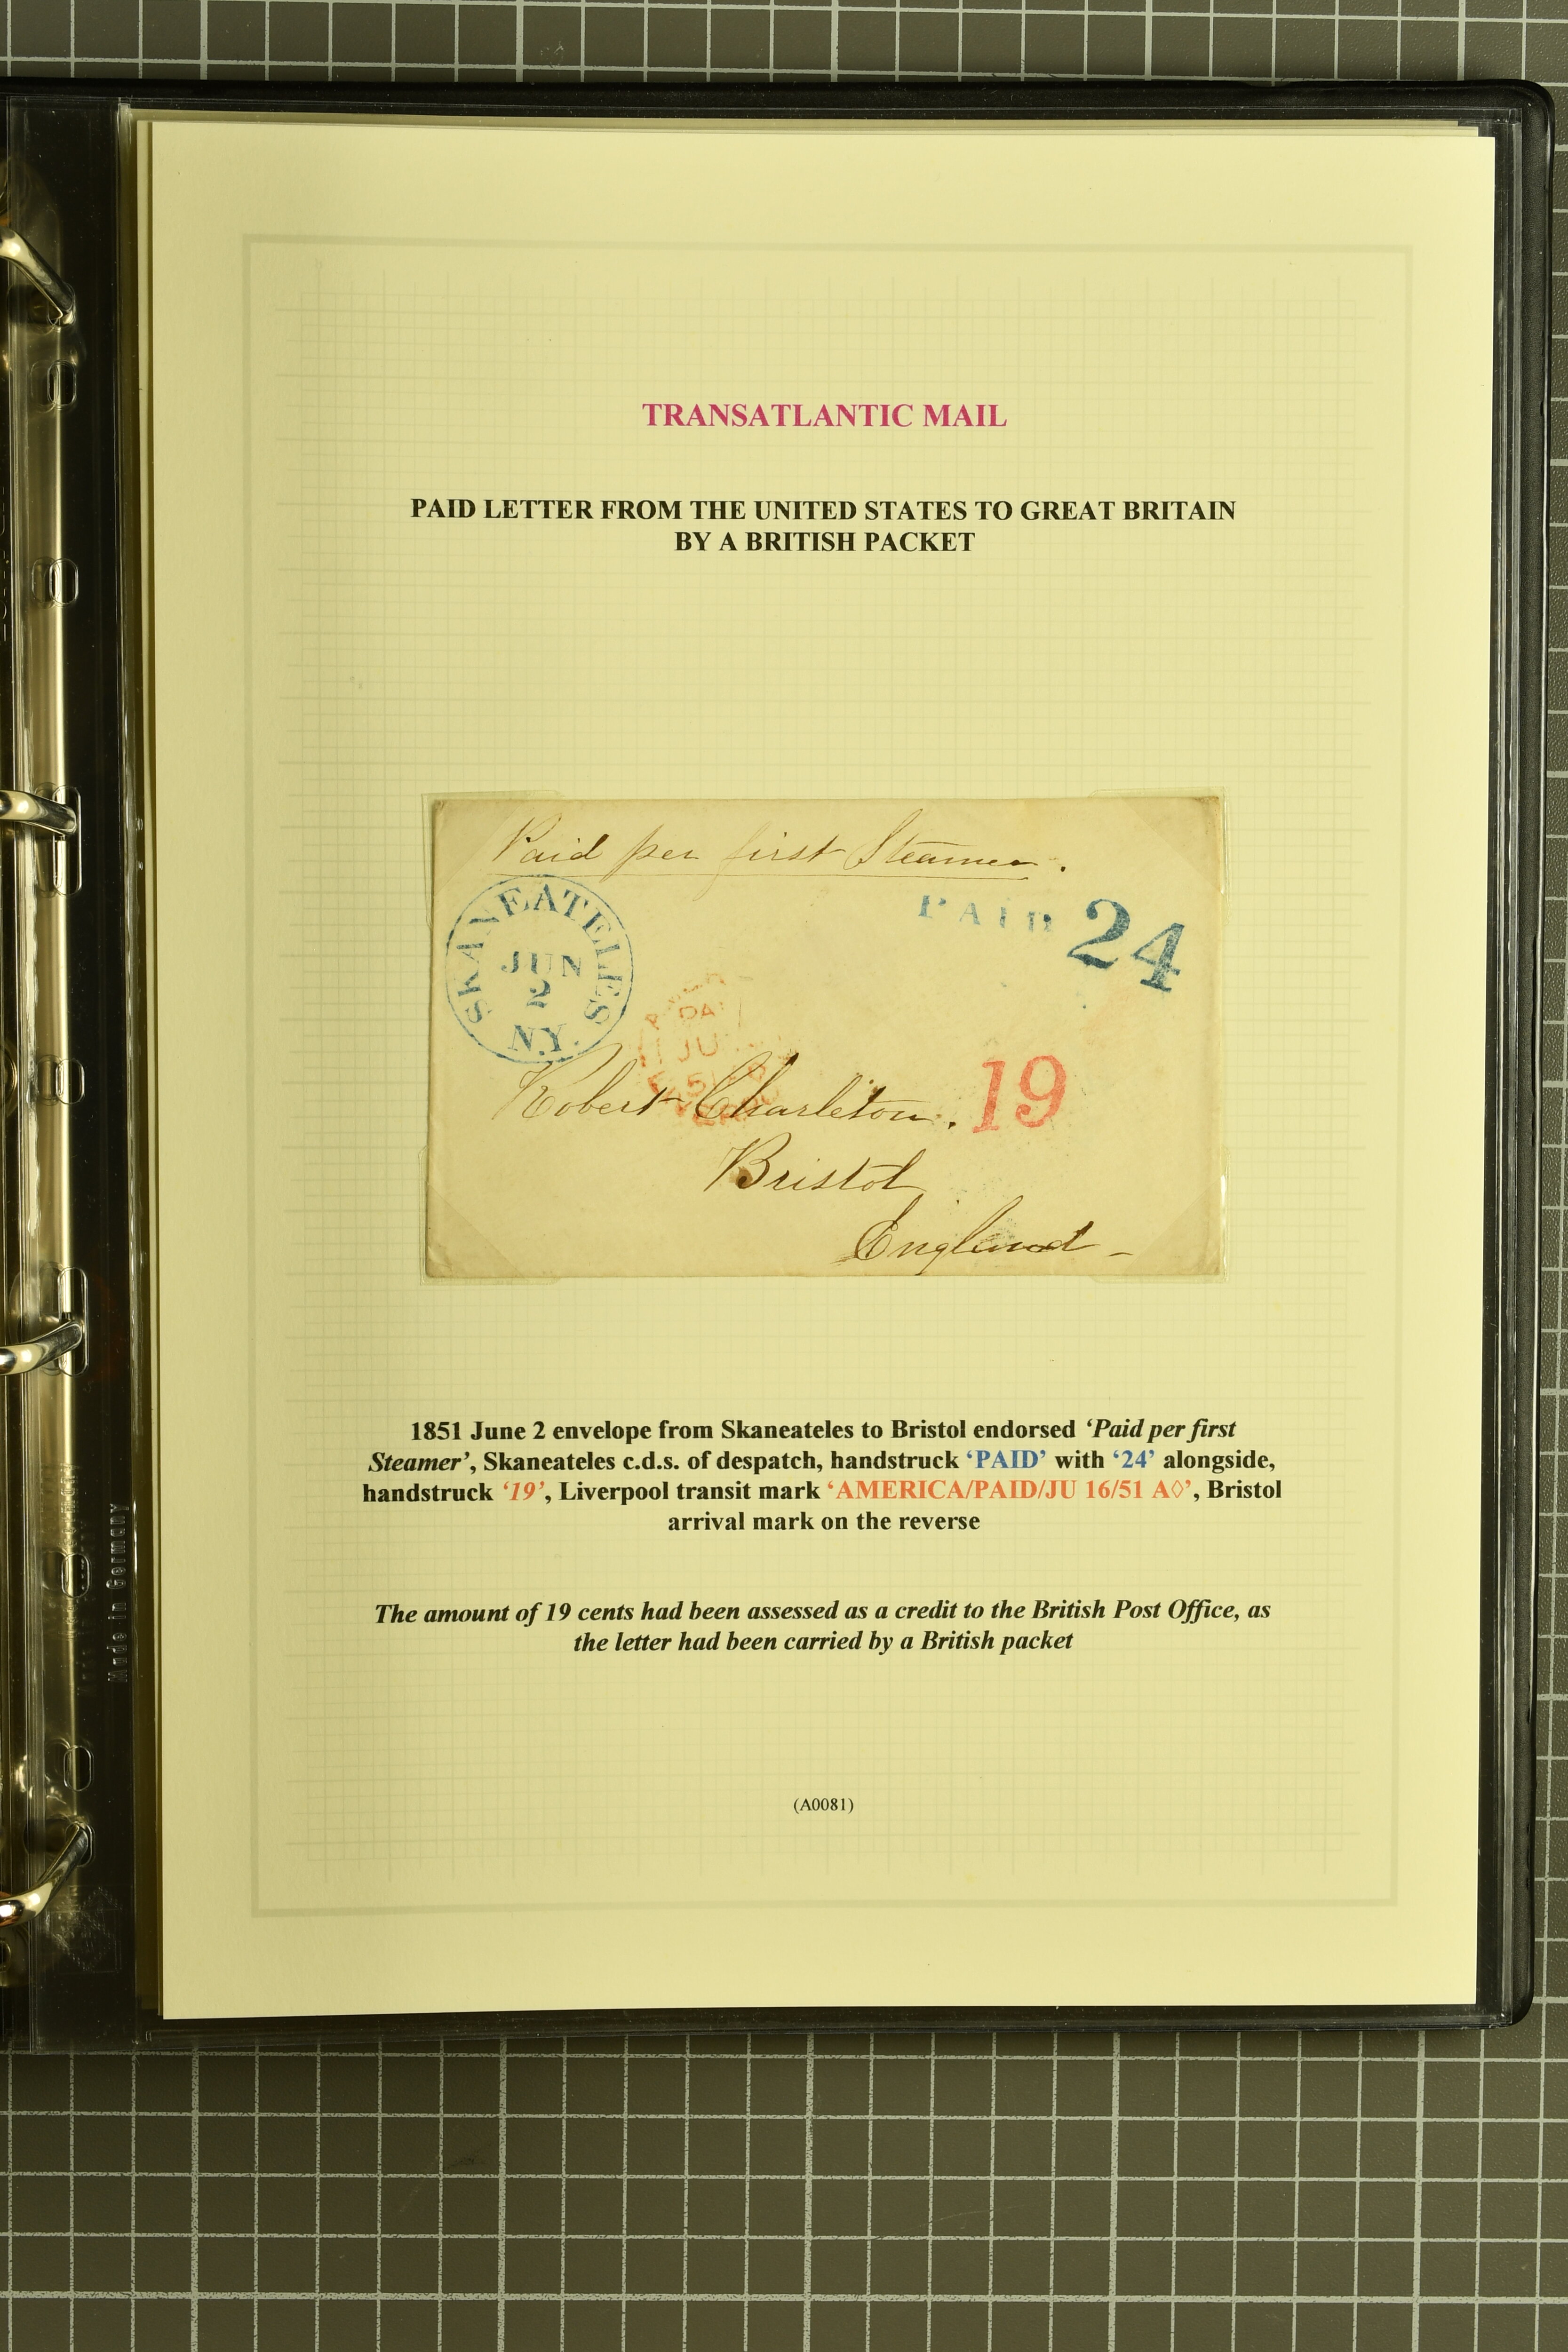 TRANSATLANTIC MAIL
PAID LETTER FROM THE UNITED STATES TO GREAT BRITAIN
BY A BRITISH PACKET
Paid per first Steamer.
SKANEATELES
JUN
2
N.Y.
PAID 24
PA
JU
51
19
Robert Charleton.
Bristol
England
1851 June 2 envelope from Skaneateles to Bristol endorsed ‘Paid per first
Steamer’, Skaneateles c.d.s. of despatch, handstruck ‘PAID’ with ‘24’ alongside,
handstruck ‘19’, Liverpool transit mark ‘AMERICA/PAID/JU 16/51 A◊’, Bristol
arrival mark on the reverse
The amount of 19 cents had been assessed as a credit to the British Post Office, as
the letter had been carried by a British packet
(A0081)
Made in Germany